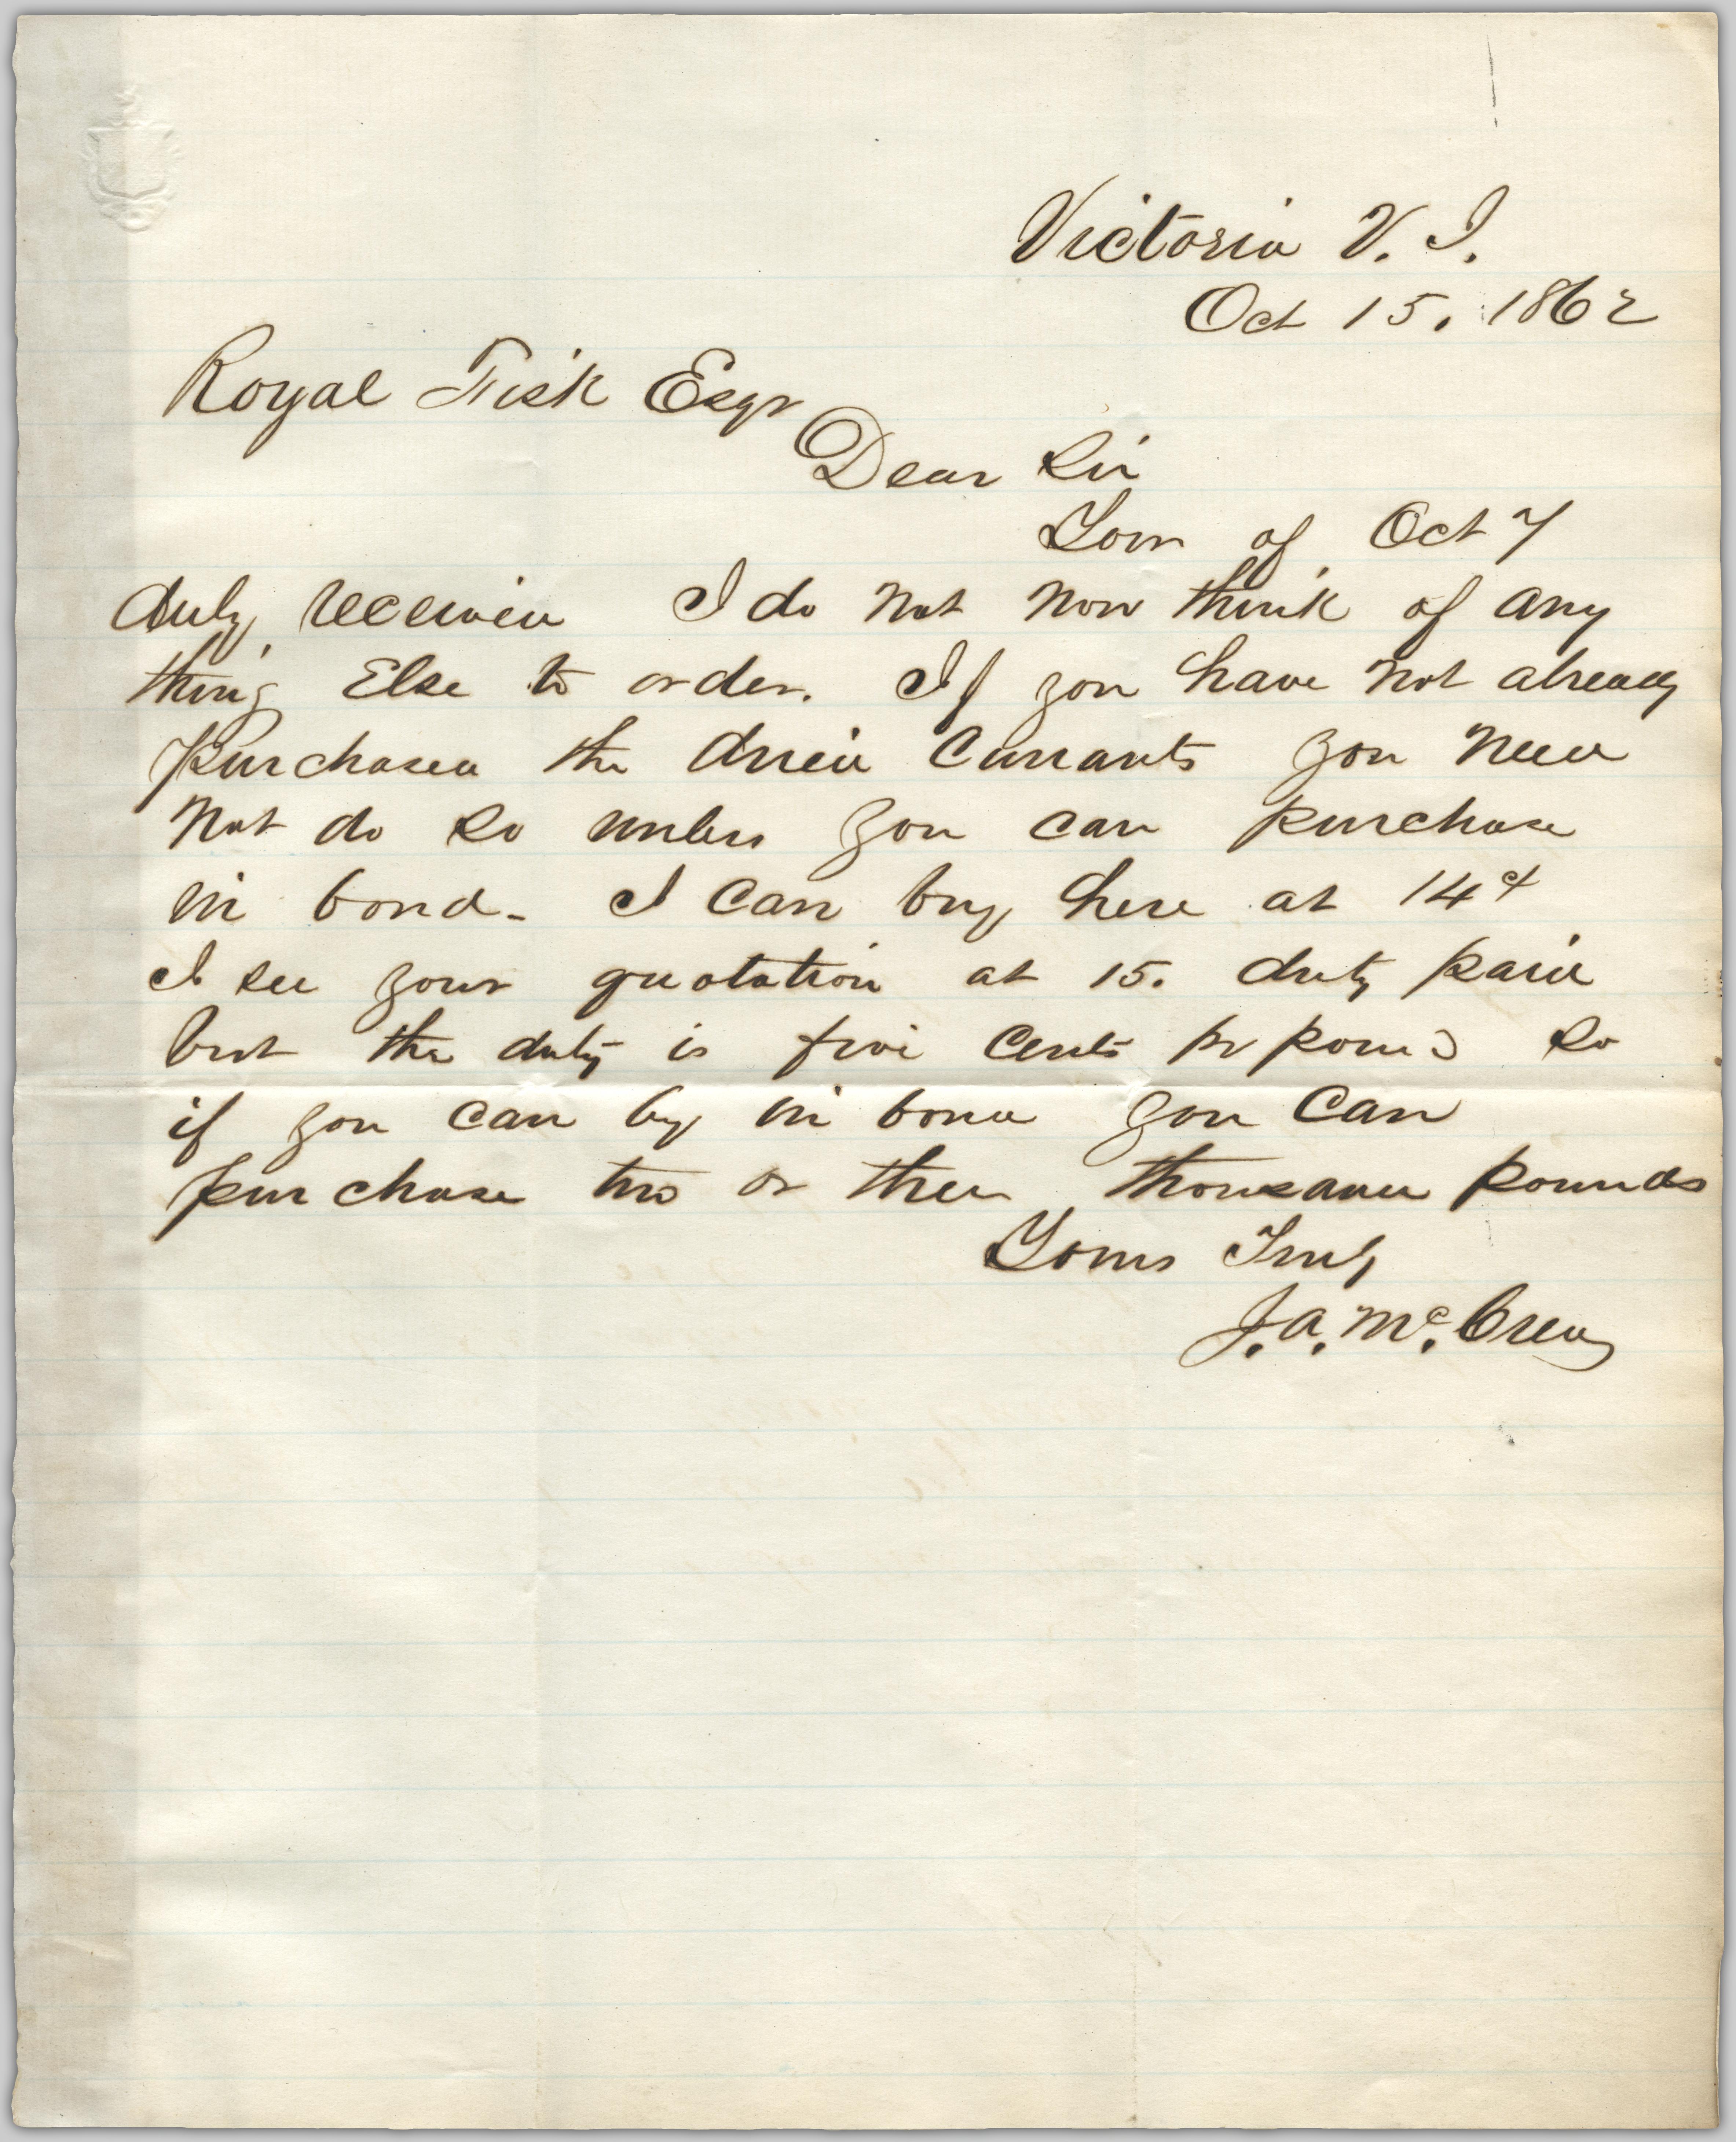 Victoria V. I.
Oct 15. 1862
Royal Fisk Esqr
Dear Sir
Your of Oct 7
duly received I do not now think of any
thing Else to order. If you have not already
purchased the dried Currants you need
not do so unless you can purchase
in bond - I can buy here at 14 ct
I see your quotation at 15. duty paid
but the duty is five cents pr pound so
if you can by in bond you can
purchase two or three thousand pounds
Yours Truly
J. A. McCrea